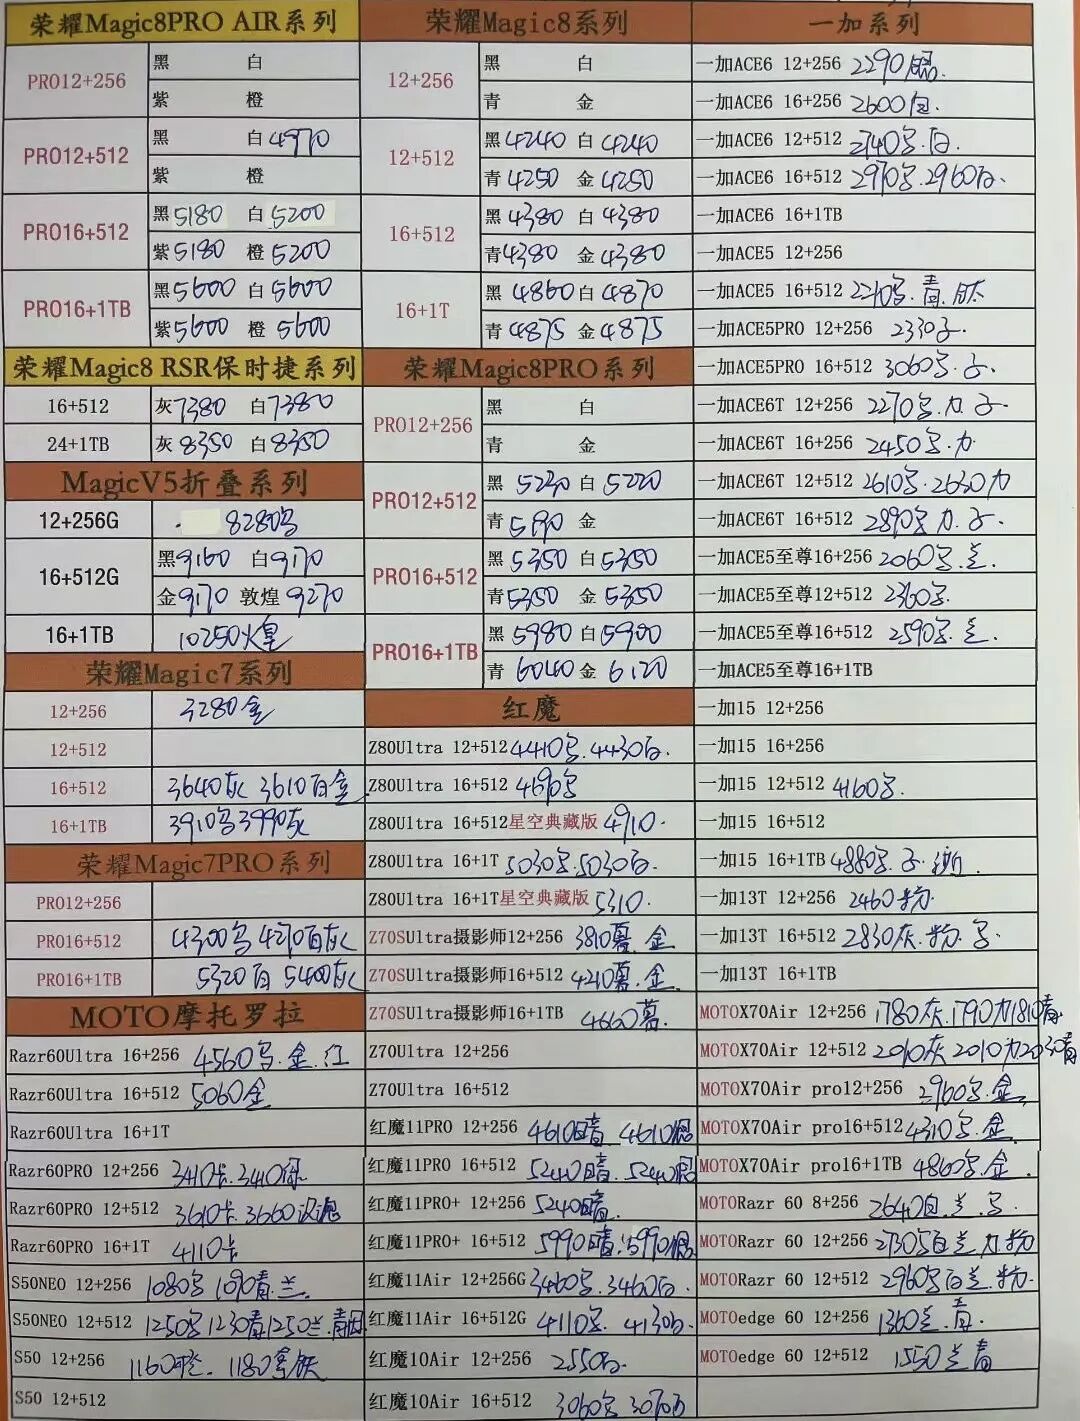 荣耀Magic8PRO AIR系列
PRO12+256 黑 白
紫 橙
PRO12+512 黑 白4970
紫 橙
PRO16+512 黑5180 白5200
紫5180 橙5200
PRO16+1TB 黑5600 白5600
紫5600 橙5600
荣耀Magic8 RSR保时捷系列
16+512 灰7380 白7380
24+1TB 灰8350 白8350
MagicV5折叠系列
12+256G 8280
16+512G 黑9160 白9170
金9170 敦煌9270
16+1TB 10250
荣耀Magic7系列
12+256 3280金
12+512
16+512 3640灰 3610白金
16+1TB 3910 3990灰
荣耀Magic7PRO系列
PRO12+256
PRO16+512 4300 4270白灰
PRO16+1TB 5320白 5400灰
MOTO摩托罗拉
Razr60Ultra 16+256 4560 金.红
Razr60Ultra 16+512 5060金
Razr60Ultra 16+1T
Razr60PRO 12+256 3410卡.3410绿
Razr60PRO 12+512 3610卡.3660
Razr60PRO 16+1T 4110卡
S50NEO 12+256 1080 1090青.兰
S50NEO 12+512 1250 1230青1250兰
S50 12+256 1160 1180
S50 12+512
荣耀Magic8系列
12+256 黑 白
青 金
12+512 黑4240 白4240
青4250 金4250
16+512 黑4380 白4380
青4380 金4380
16+1T 黑4860 白4870
青4875 金4875
荣耀Magic8PRO系列
PRO12+256 黑 白
青 金
PRO12+512 黑 白5220
青5190 金
PRO16+512 黑5350 白5350
青5350 金5350
PRO16+1TB 黑5980 白5900
青6040 金6120
红魔
Z80Ultra 12+512 4410.4430白.
Z80Ultra 16+512 4690
Z80Ultra 16+512星空典藏版 4910.
Z80Ultra 16+1T 5030.5030白.
Z80Ultra 16+1T星空典藏版 5310.
Z70SUltra摄影师12+256 3810 金
Z70SUltra摄影师16+512 4210 金
Z70SUltra摄影师16+1TB 4660
Z70Ultra 12+256
Z70Ultra 16+512
红魔11PRO 12+256 4610暗. 4610银
红魔11PRO 16+512 5240暗. 5240银
红魔11PRO+ 12+256 5240暗.
红魔11PRO+ 16+512 5990暗.5990银
红魔11Air 12+256G 3460.3460白.
红魔11Air 16+512G 4110. 4130白
红魔10Air 12+256 2550白.
红魔10Air 16+512 3060 3070白
一加系列
一加ACE6 12+256 2290银.
一加ACE6 16+256 2600白.
一加ACE6 12+512 2740.白.
一加ACE6 16+512 2970.2960白.
一加ACE6 16+1TB
一加ACE5 12+256
一加ACE5 16+512 2210.青.钛
一加ACE5PRO 12+256 2330子.
一加ACE5PRO 16+512 3060.子.
一加ACE6T 12+256 2270.力.子.
一加ACE6T 16+256 2450.力
一加ACE6T 12+512 2610.2630力
一加ACE6T 16+512 2890力.子.
一加ACE5至尊16+256 2060.兰.
一加ACE5至尊12+512 2360.
一加ACE5至尊16+512 2590.兰.
一加ACE5至尊16+1TB
一加15 12+256
一加15 16+256
一加15 12+512 4160.
一加15 16+512
一加15 16+1TB 4880.子.
一加13T 12+256 2460粉.
一加13T 16+512 2830灰.粉.
一加13T 16+1TB
MOTOX70Air 12+256 1780灰.1790力1810青.
MOTOX70Air 12+512 2010灰 2010力2030青
MOTOX70Air pro12+256 2960.金.
MOTOX70Air pro16+512 4310.金.
MOTOX70Air pro16+1TB 4860.金.
MOTORazr 60 8+256 2640白.兰.
MOTORazr 60 12+256 2730白兰.力.粉
MOTORazr 60 12+512 2960白兰.粉.
MOTOedge 60 12+256 1360兰.青.
MOTOedge 60 12+512 1550兰青